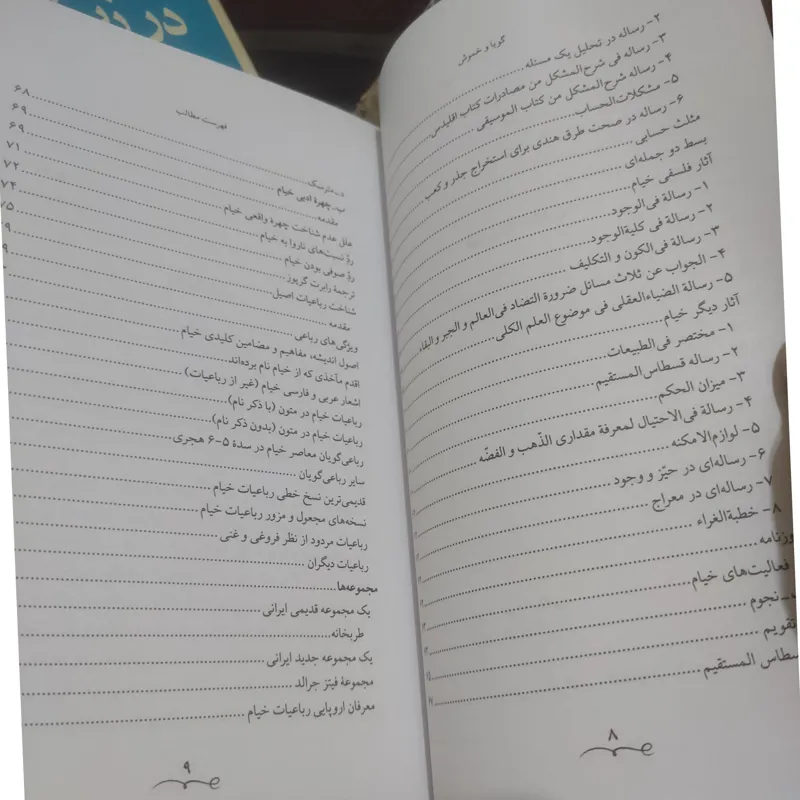 در
گویا و خموش
۲- رساله در تحلیل یک مسئله
۳- رساله فی شرح‌المشکل من مصادرات کتاب اقلیدس
۴- رساله شرح‌المشکل من کتاب الموسیقی
۵- مشکلات‌الحساب
۶- رساله در صحت طرق هندی برای استخراج جذر و کعب
مثلث حسابی
بسط دو جمله‌ای
آثار فلسفی خیام
۱- رسالة فی‌الوجود
۲- رسالة فی کلیة‌الوجود
۳- رسالة فی‌الکون و التکلیف
۴- الجواب عن ثلاث مسائل ضرورة التضاد فی‌العالم و الجبر و البقاء
۵- رسالة الضیاء‌العقلی فی موضوع العلم الکلی
آثار دیگر خیام
۱- مختصر فی‌الطبیعات
۲- رساله قسطاس‌المستقیم
۳- میزان الحکم
۴- رسالة فی‌الاحتیال لمعرفة مقداری الذّهب و الفضّه
۵- لوازم‌الامکنه
۶- رساله‌ای در حیّز و وجود
۷- رساله‌ای در معراج
۸- خطبة‌الغراء
وزنامه
فعالیت‌های خیام
ـ نجوم
تقویم
سطاس المستقیم
۸
فهرست مطالب
۶۸
ب- چهرهٔ ادبی خیام ۶۹
مقدمه ۶۹
علل عدم شناخت چهره واقعی خیام ۷۱
ردّ نسبت‌های ناروا به خیام ۷۲
ردّ صوفی بودن خیام ۷۴
ترجمهٔ رابرت گریوز ۷۵
شناخت رباعیات اصیل
مقدمه
ویژگی‌های رباعی
اصول اندیشه، مفاهیم و مضامین کلیدی خیام
اقدم مآخذی که از خیام نام برده‌اند
اشعار عربی و فارسی خیام (غیر از رباعیات)
رباعیات خیام در متون (با ذکر نام)
رباعیات خیام در متون (بدون ذکر نام)
رباعی‌گویان معاصر خیام در سدهٔ ۵-۶ هجری
سایر رباعی‌گویان
قدیمی‌ترین نسخ خطی رباعیات خیام
نسخه‌های مجعول و مزور رباعیات خیام
رباعیات مردود از نظر فروغی و غنی
رباعیات دیگران
مجموعه‌ها
یک مجموعه قدیمی ایرانی
طربخانه
یک مجموعه جدید ایرانی
مجموعهٔ فیتز جرالد
معرفان اروپایی رباعیات خیام
۹